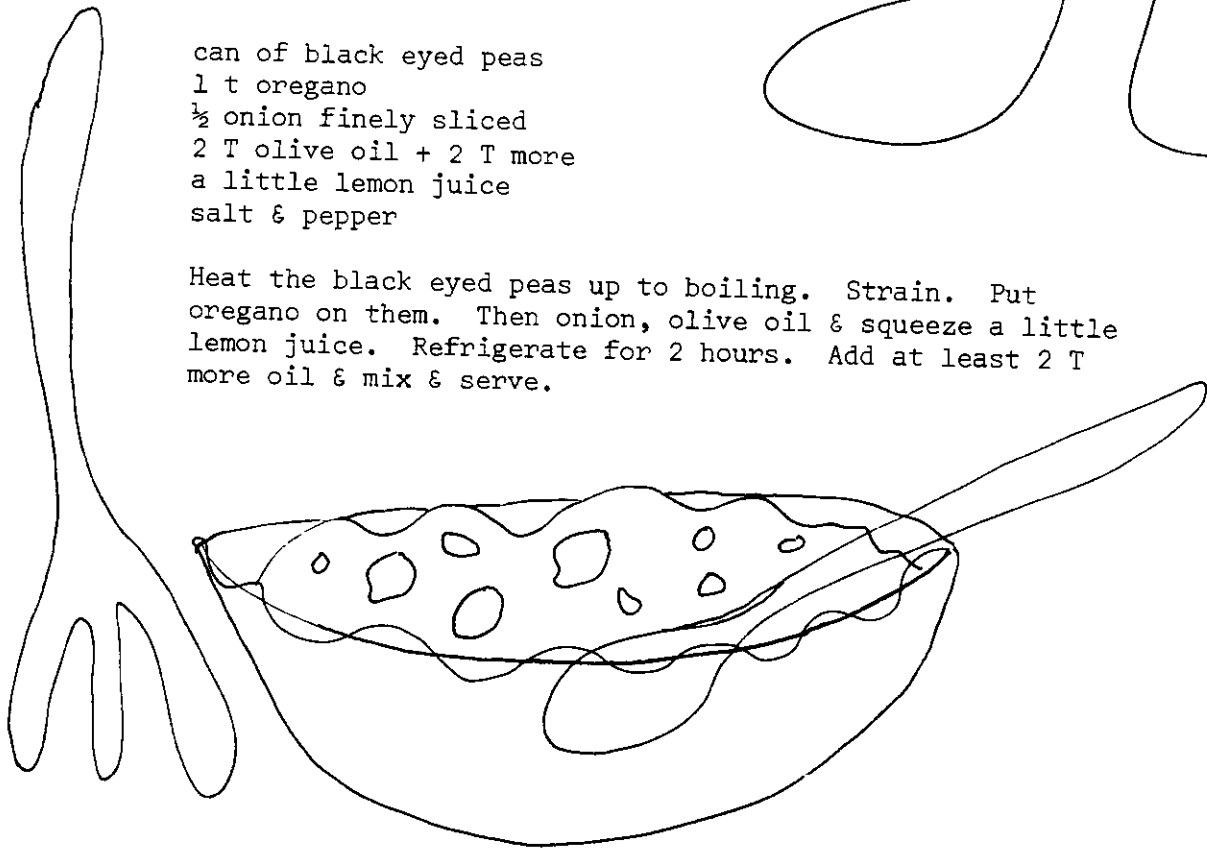 can of black eyed peas
1 t oregano
½ onion finely sliced
2 T olive oil + 2 T more
a little lemon juice
salt & pepper
Heat the black eyed peas up to boiling. Strain. Put
oregano on them. Then onion, olive oil & squeeze a little
lemon juice. Refrigerate for 2 hours. Add at least 2 T
more oil & mix & serve.